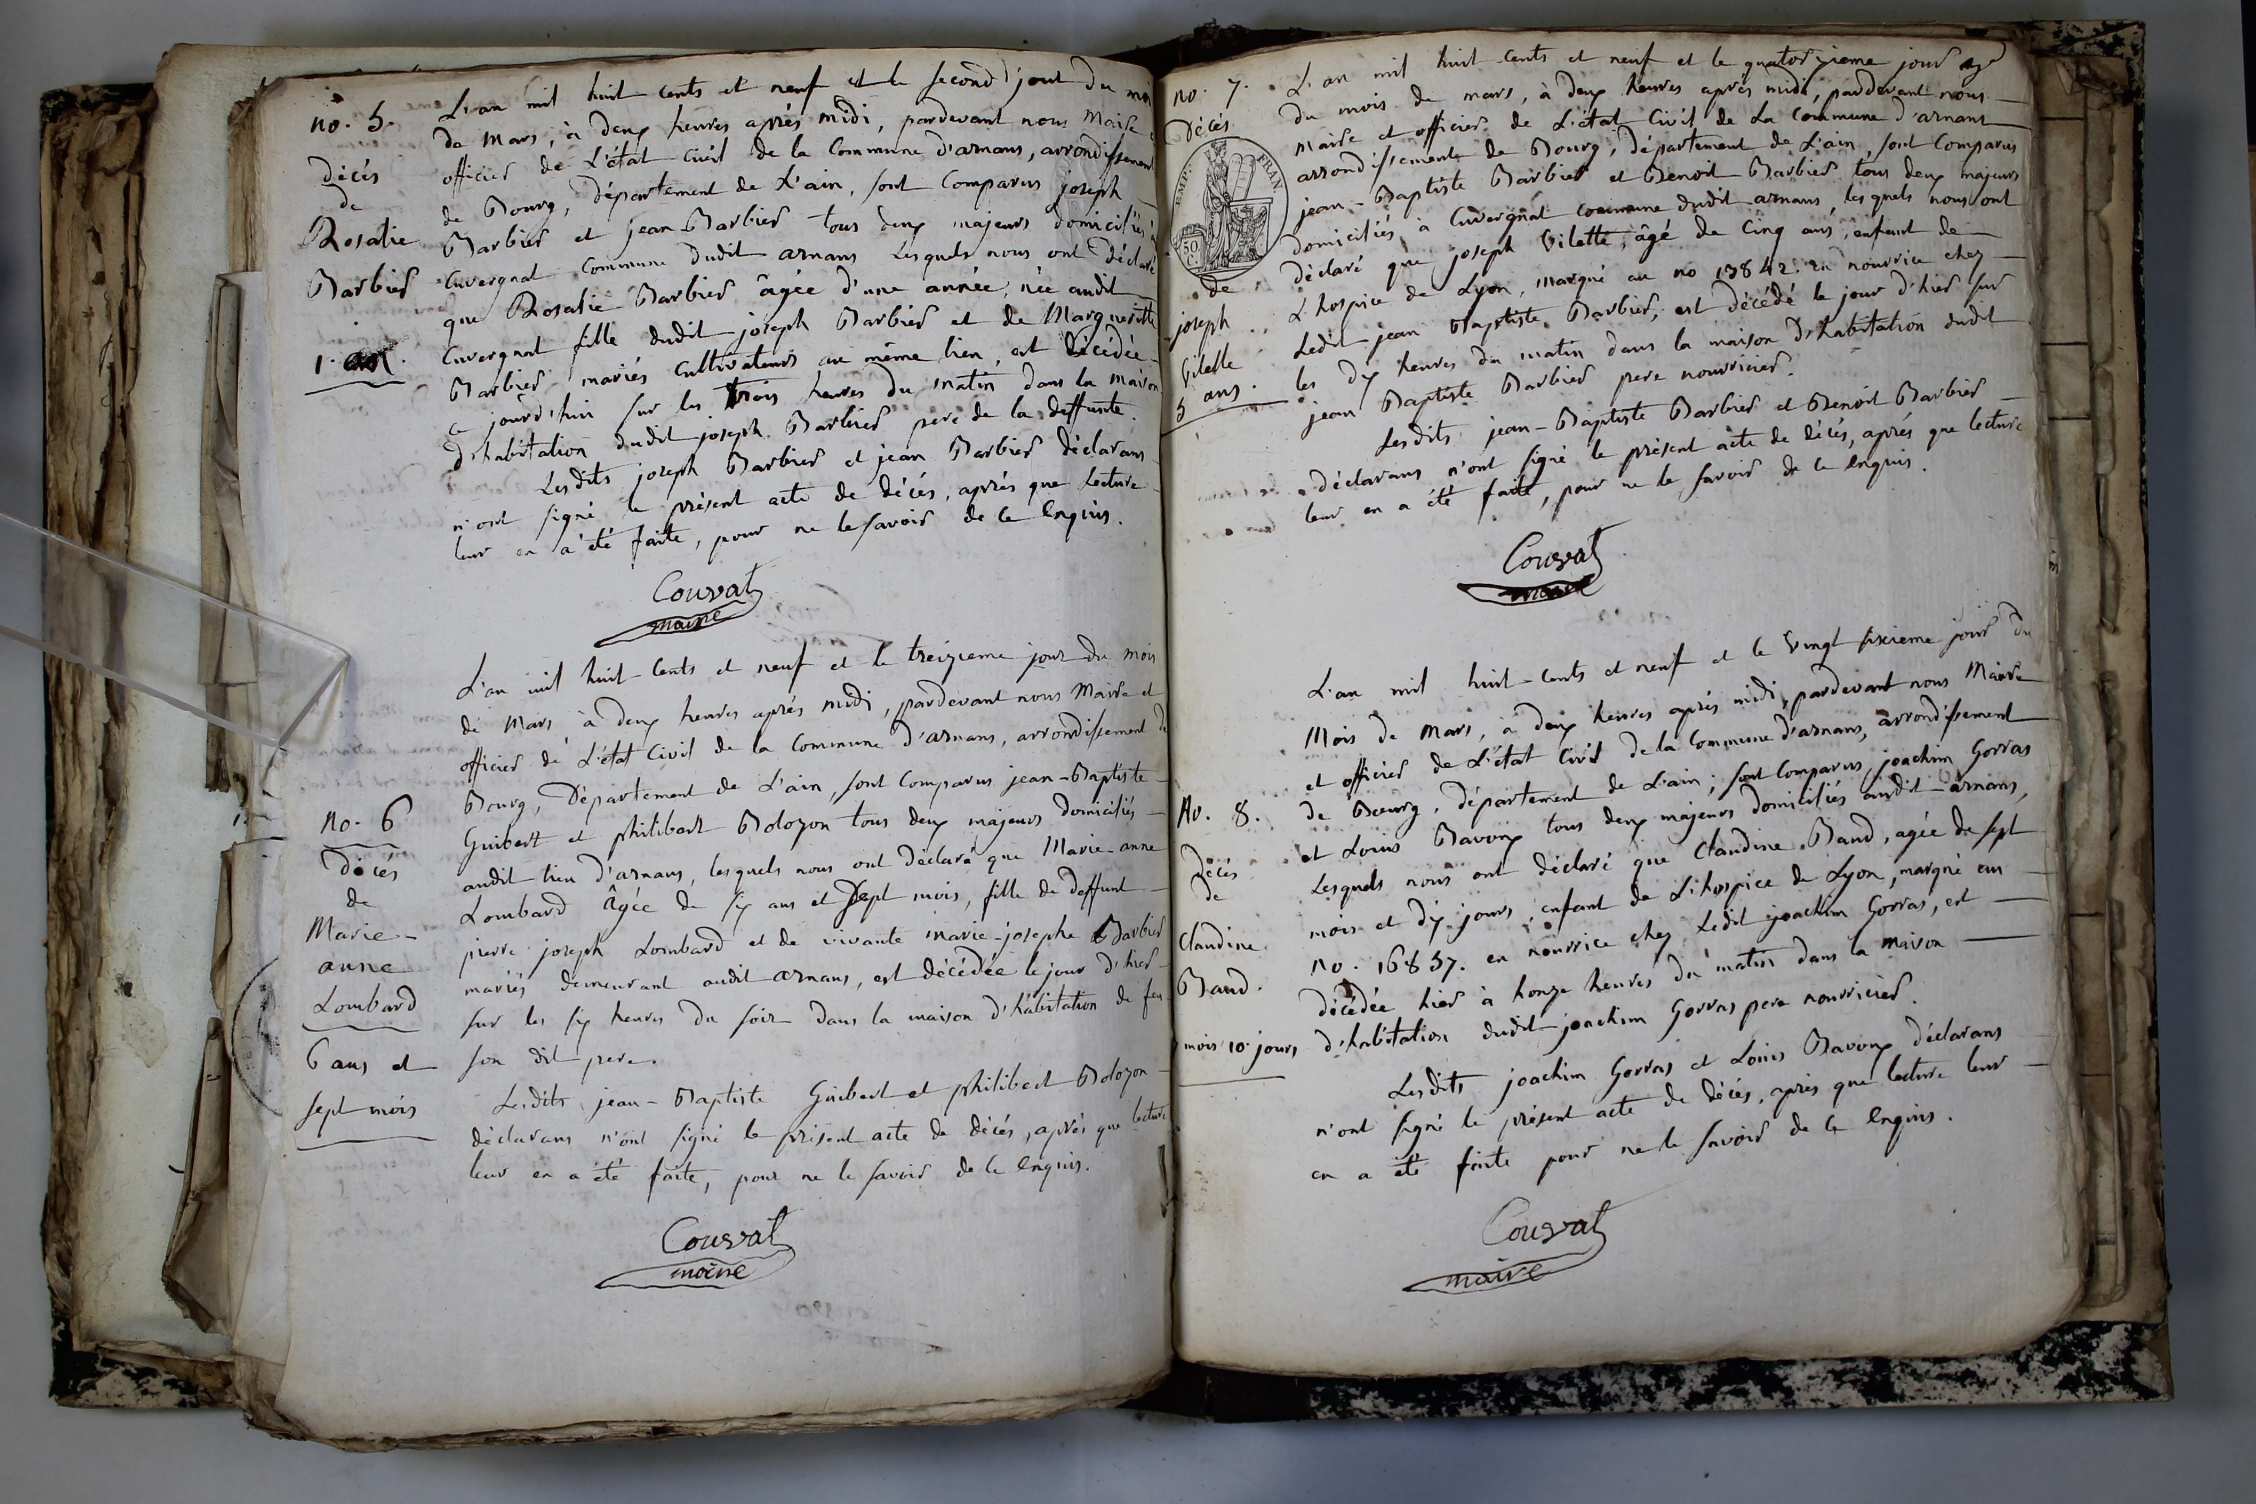 no. 5.
Décés
de
Rosalie
Barbier
1. an.
L'an mil huit cents et neuf et le second jour du mois
de Mars, à deux heures après midi, pardevant nous Maire et
officier de L'état Civil de la Commune d'arnans, arrondissement
de Bourg, Département de L'ain, sont Comparus joseph
Barbier et jean Barbier tous deux majeurs domiciliés à
Cuvergnat Commune dudit arnans Lesquels nous ont Déclaré
que Rosalie Barbier âgée d'une année, née audit
Cuvergnat fille dudit joseph Barbier et de Margueritte
Barbier mariés Cultivateurs au même lieu, est Décédée
ce jourd'hui sur les trois heures du matin dans la maison
d'habitation dudit joseph Barbier pere de la deffunte.
Lesdits joseph Barbier et jean Barbier déclarans
n'ont signé le présent acte de décés, après que Lecture
leur en a été faite, pour ne le savoir de ce Enquis.
Couvat
maire
no. 6
Décés
de
Marie-
anne
Lombard
6 ans et
sept mois
L'an mil huit Cents et neuf et le treizieme jour du mois
de Mars, à deux heures après midi, pardevant nous Maire et
officier de L'état Civil de la Commune d'arnans, arrondissement de
Bourg, Département de L'ain, sont Comparus jean-Baptiste
Guibert et philibert Bolozon tous deux majeurs domiciliés
audit lieu d'arnans, lesquels nous ont Déclaré que Marie-anne
Lombard âgée de six ans et sept mois, fille de deffunt
pierre joseph Lombard et de vivante marie-josephe Barbier
mariés demeurant audit arnans, est décédée le jour d'hier
sur les six heures du soir dans la maison d'habitation de feu
son dit pere.
Lesdits jean-Baptiste Guibert et philibert Bolozon
déclarans n'ont signé le présent acte de décés, après que lecture
leur en a été faite, pour ne le savoir de ce Enquis.
Couvat
maire
no. 7.
Décés
EMP. FRAN.
50 C.
de
joseph
Vilette
5 ans.
L'an mil huit cents et neuf et le quatorzieme jour
du mois de mars, à deux heures après midi, pardevant nous
maire et officier de L'état Civil de La Commune d'arnans
arrondissement de Bourg, Département de L'ain, sont Comparus
jean-Baptiste Barbier et Benoit Barbier tous deux majeurs
domiciliés à Cuvergnat commune dudit arnans, lesquels nous ont
déclaré que joseph Vilette, âgé de Cinq ans, enfant de
L'hospice de Lyon, marqué au no 13842. en nourrice chez
Ledit jean Baptiste Barbier, est Décédé le jour d'hier sur
les dix heures du matin dans la maison d'habitation dudit
jean Baptiste Barbier pere nourricier.
Lesdits jean-Baptiste Barbier et Benoit Barbier
déclarans n'ont signé le présent acte de Décés, après que lecture
leur en a été faite, pour ne le savoir de ce Enquis.
Couvat
maire
No. 8.
Décés
de
Claudine
Baud.
mois 10 jours
L'an mil huit-Cents et neuf et le Vingt sixieme jour du
Mois de Mars, à deux heures après midi, pardevant nous Maire
et officier de L'état Civil de la Commune d'arnans, arrondissement
de Bourg, département de L'ain, sont Comparus joachim Gorras
et Louis Bavoux tous deux majeurs domiciliés audit arnans,
Lesquels nous ont déclaré que Claudine Baud, agée de sept
mois et dix jours, enfant de L'hospice de Lyon, marqué au
no. 16857. en nourrice chez Ledit joachim Gorras, est
décédée hier à honze heures du matin dans la maison
d'habitation dudit joachim Gorras pere nourricier.
Lesdits joachim Gorras et Louis Bavoux déclarans
n'ont signé le présent acte de décés, après que lecture leur
en a été faite pour ne le savoir de ce Enquis.
Couvat
maire